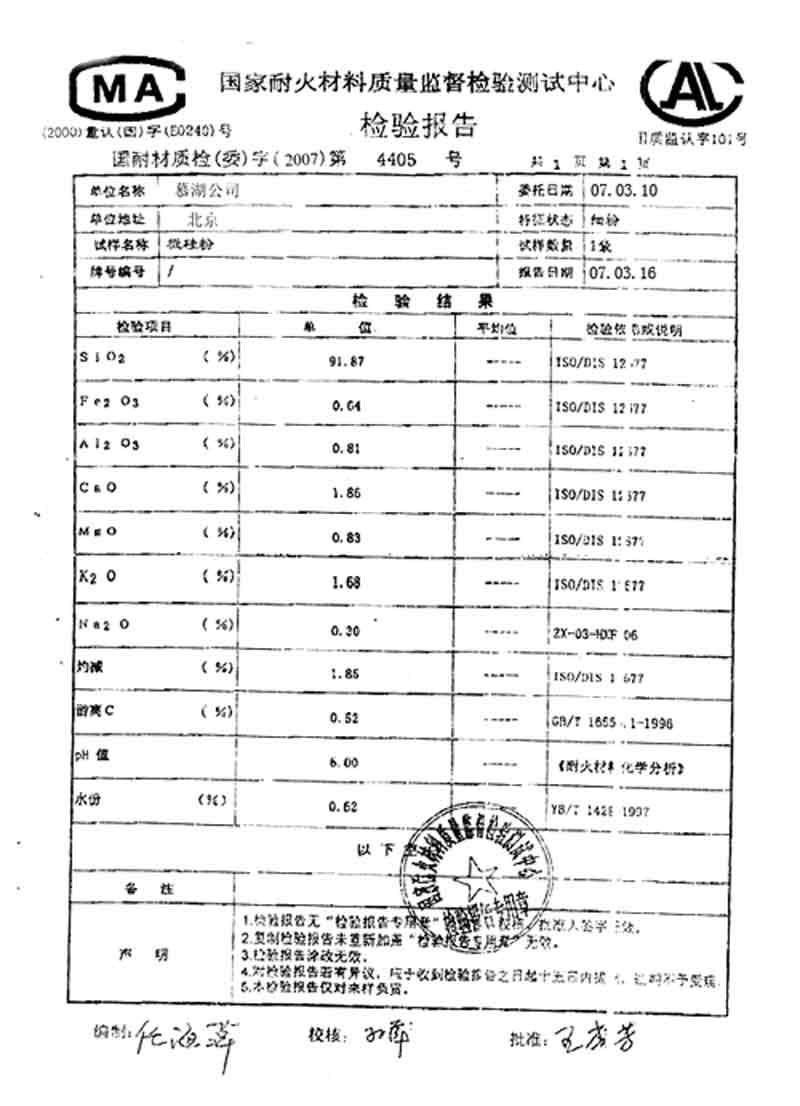 MA
国家耐火材料质量监督检验测试中心
AL
(2000)量认(国)字(E0240)号
检验报告
质监认字101号
国耐材质检(委)字(2007)第 4405 号
共 1 页 第 1 页
单位名称 慕湖公司 委托日期 07.03.10
单位地址 北京 特征状态 细粉
试样名称 微硅粉 试样数量 1袋
牌号编号 / 报告日期 07.03.16
检 验 结 果
检验项目 单 值 平均值 检验依 或说明
SiO2 (%) 91.87 ----- ISO/DIS
Fe2O3 (%) 0.64 ----- ISO/DIS
Al2O3 (%) 0.81 ----- ISO/DIS
CaO (%) 1.86 ----- ISO/DIS
MgO (%) 0.83 ----- ISO/DIS
K2O (%) 1.68 ----- ISO/DIS
Na2O (%) 0.30 ----- ZX-03-
灼减 (%) 1.85 ----- ISO/DIS
游离C (%) 0.52 ----- GB/T
pH 值 6.00 ----- 《耐火材料化学分析》
水份 (%) 0.62 YB/T
以 下
备 注
国家耐火材料质量监督检验测试中心
检验报告专用章
声 明
1.检验报告无“检验报告专用章” 批准人签字 无效。
2.复制检验报告未重新加盖“检验报告专用章”无效。
3.检验报告涂改无效。
4.对检验报告若有异议,应于收到检验报告之日起十五日内提 不予受理
5.本检验报告仅对来样负责。
编制: 校核: 批准: